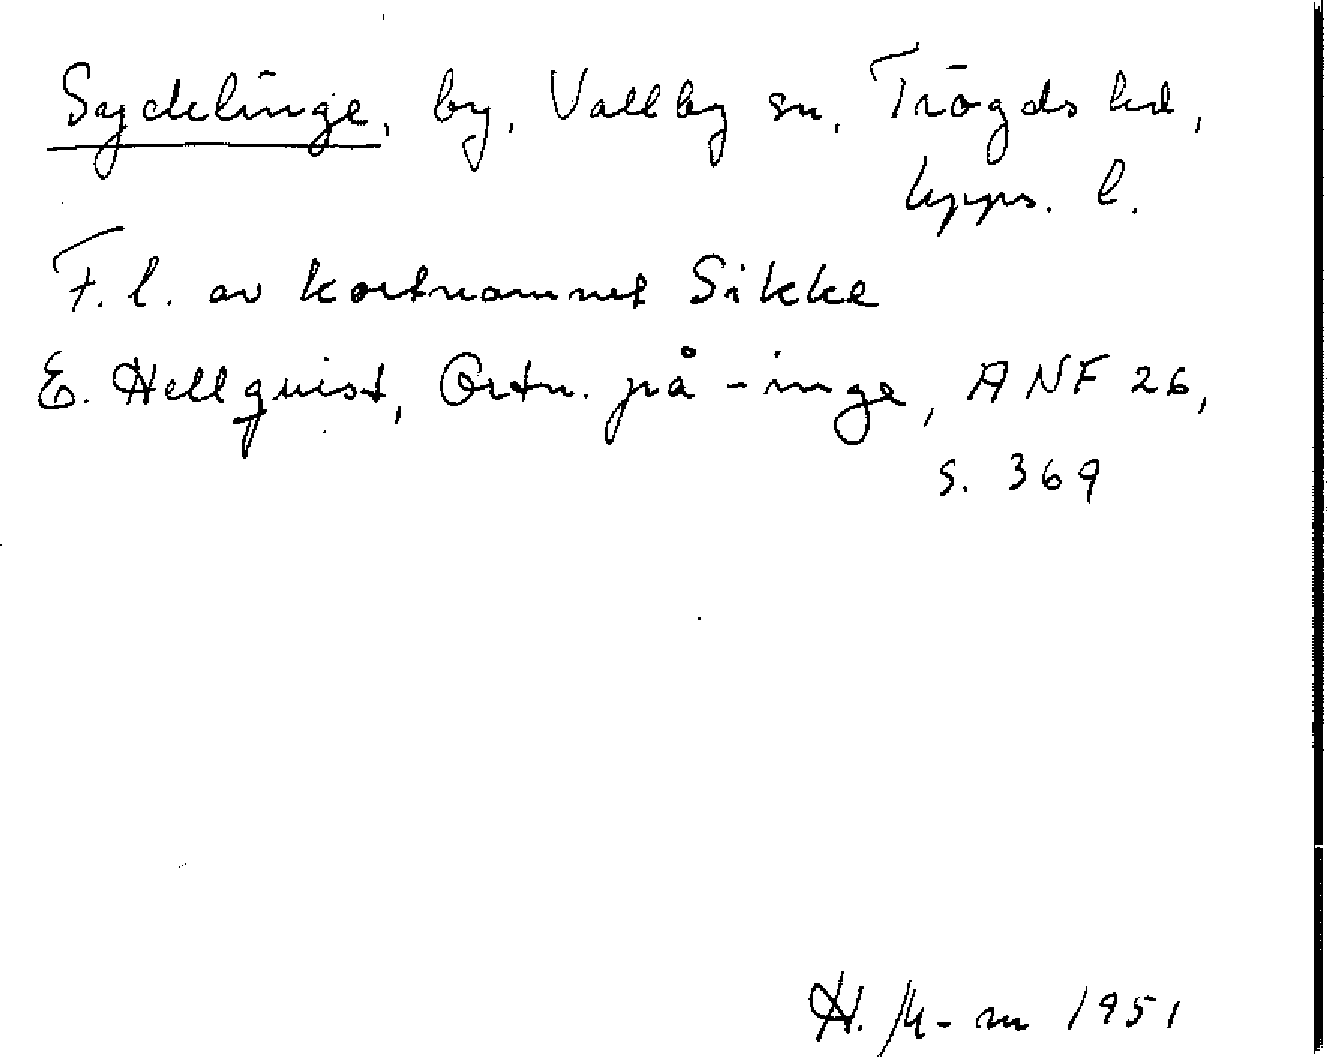 Sydelinge, by, Vallby sn, Trögds hd,
Upps. l.
F. l. av kortnamnet Sikke
E. Hellquist, Ortn. på -inge, ANF 26,
s. 369
1951